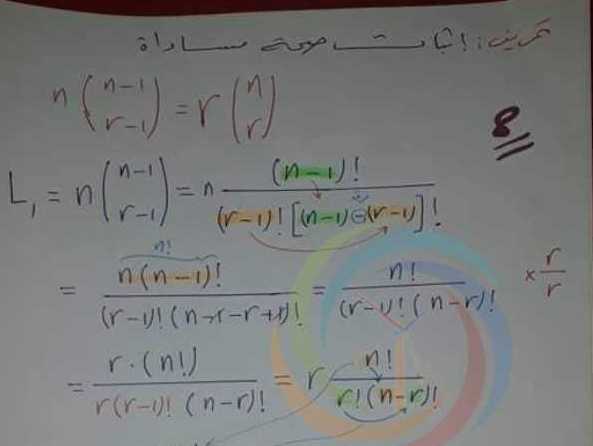 تمرين: اثبات صحة مساواة
n (n-1 r-1) = r (n r)
8
L₁ = n (n-1 r-1) = n (n-1)! / (r-1)! [(n-1) ⊖ (r-1)]!
n!
= n(n-1)! / (r-1)! (n-1-r+1)! = n! / (r-1)! (n-r)! × r/r
= r·(n!) / r(r-1)! (n-r)! = r n! / r!(n-r)!